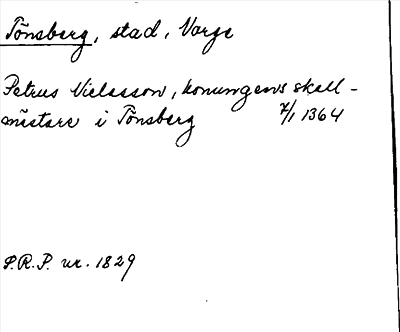 Tönsberg, stad, Norge
Petrus Nielsson, konungens skatt-
mästare i Tönsberg 7/1 1364
S.R.P. nr. 1829